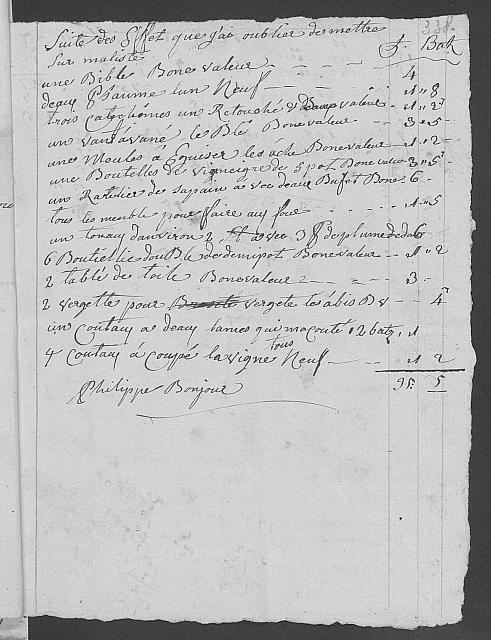 338.
Suite des Effet que jai oublier des mettre
Sur maliste f. Batz
une Bible Bonevaleur 4
deauy Psaume lun Neuf 1 " 8
trois Catechimes un Retouché valeur 1 " 2
un vantavané le Blé Bonevaleur 3 " 5
une Moules a Eguiser les ache Bonevaleur 1 " 2
une Boutelles de vignergre de 5 pot Bonevaleur 3 " 5
un Ratelier de sapain avec deauy Bufet Bone 6
tous les meuble pour faire auy four 1 " 5
un tonauy danviron 2 avec 3 f deplumededa 6
6 Boutiellie douBle de demipot Bonevaleur 1 " 2
2 tablé de toile Bonevaleur 3
2 vergette pour vergete les abis B v 4
un Coutauy a deauy lames qui ma couté 12 batz 1
4 Coutauy à Coupé la vigne tous Neuf 1 2
35. 5
Philippe Bonjour